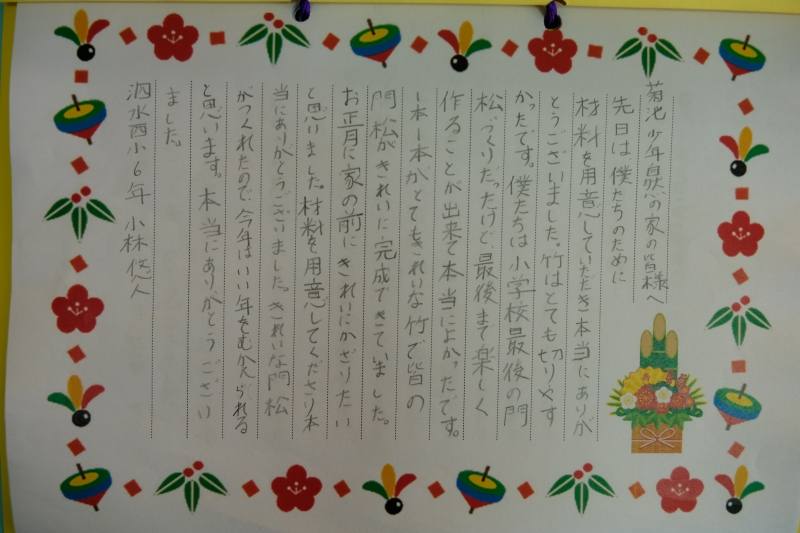 菊池少年自然の家の皆様へ
先日は僕たちのために
材料を用意していただき本当にありが
とうございました。竹はとても切りやす
かったです。僕たちは小学校最後の門
松づくりだったけど、最後まで楽しく
作ることが出来て本当によかったです。
一本一本がとてもきれいな竹で皆の
門松がきれいに完成できていました。
お正月に家の前にきれいにかざりたい
と思いました。材料を用意してくださり本
当にありがとうございました。きれいな門松
がつくれたので今年はいい年をむかえられる
と思います。本当にありがとうござい
ました。
泗水西小6年 小林悠人